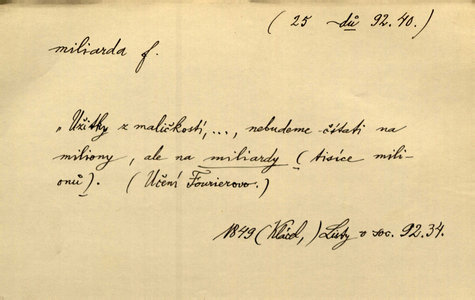 ( 25 dů 92.40.)
miliarda f.
„Užitky z maličkostí, ..., nebudeme čítati na
miliony, ale na miliardy (tisíce mili-
onů). (Učení Fourierovo.)
1849 (Klácel,) Listy o soc. 92.34.